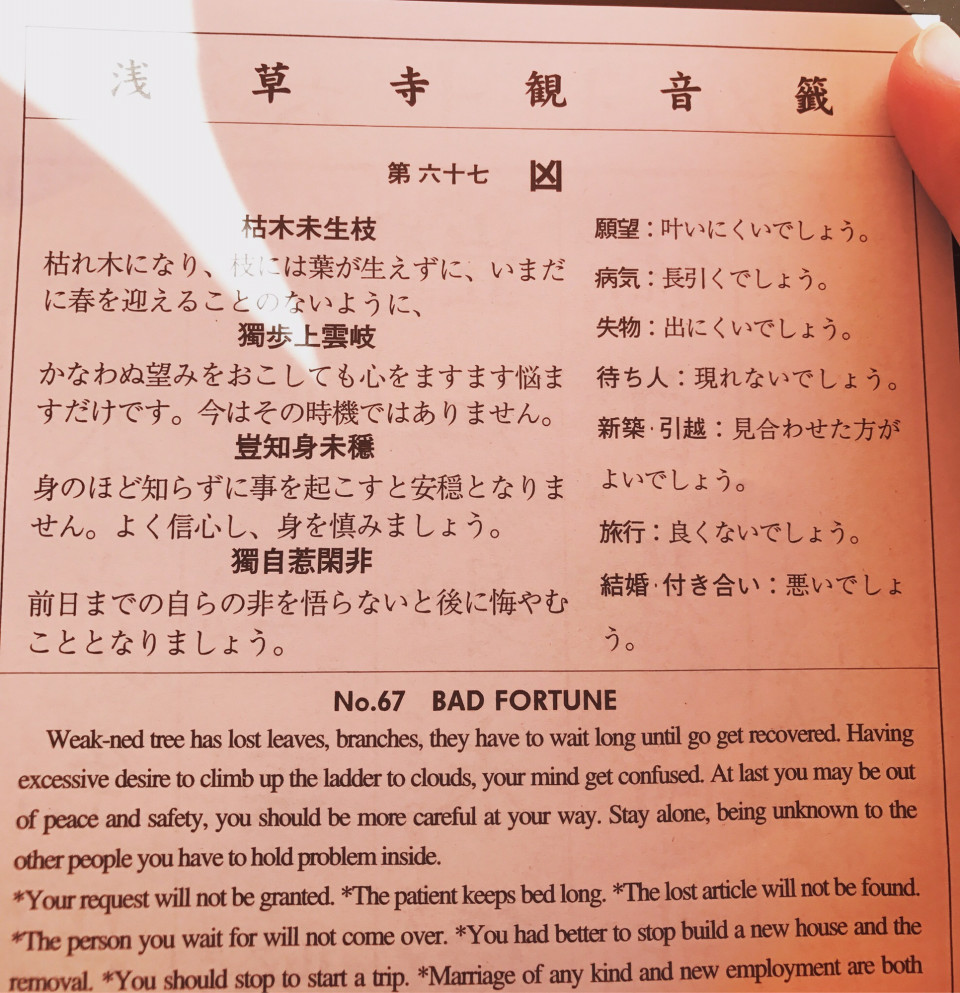 浅草寺観音籤
第六十七 凶
枯木未生枝
枯れ木になり、枝には葉が生えずに、いまだ
に春を迎えることのないように、
獨歩上雲岐
かなわぬ望みをおこしても心をますます悩ま
すだけです。今はその時機ではありません。
豈知身未穩
身のほど知らずに事を起こすと安穏となりま
せん。よく信心し、身を慎みましょう。
獨自惹閑非
前日までの自らの非を悟らないと後に悔やむ
こととなりましょう。
願望：叶いにくいでしょう。
病気：長引くでしょう。
失物：出にくいでしょう。
待ち人：現れないでしょう。
新築·引越：見合わせた方が
よいでしょう。
旅行：良くないでしょう。
結婚·付き合い：悪いでしょ
う。
No.67 BAD FORTUNE
Weak-ned tree has lost leaves, branches, they have to wait long until go get recovered. Having
excessive desire to climb up the ladder to clouds, your mind get confused. At last you may be out
of peace and safety, you should be more careful at your way. Stay alone, being unknown to the
other people you have to hold problem inside.
*Your request will not be granted. *The patient keeps bed long. *The lost article will not be found.
*The person you wait for will not come over. *You had better to stop build a new house and the
removal. *You should stop to start a trip. *Marriage of any kind and new employment are both